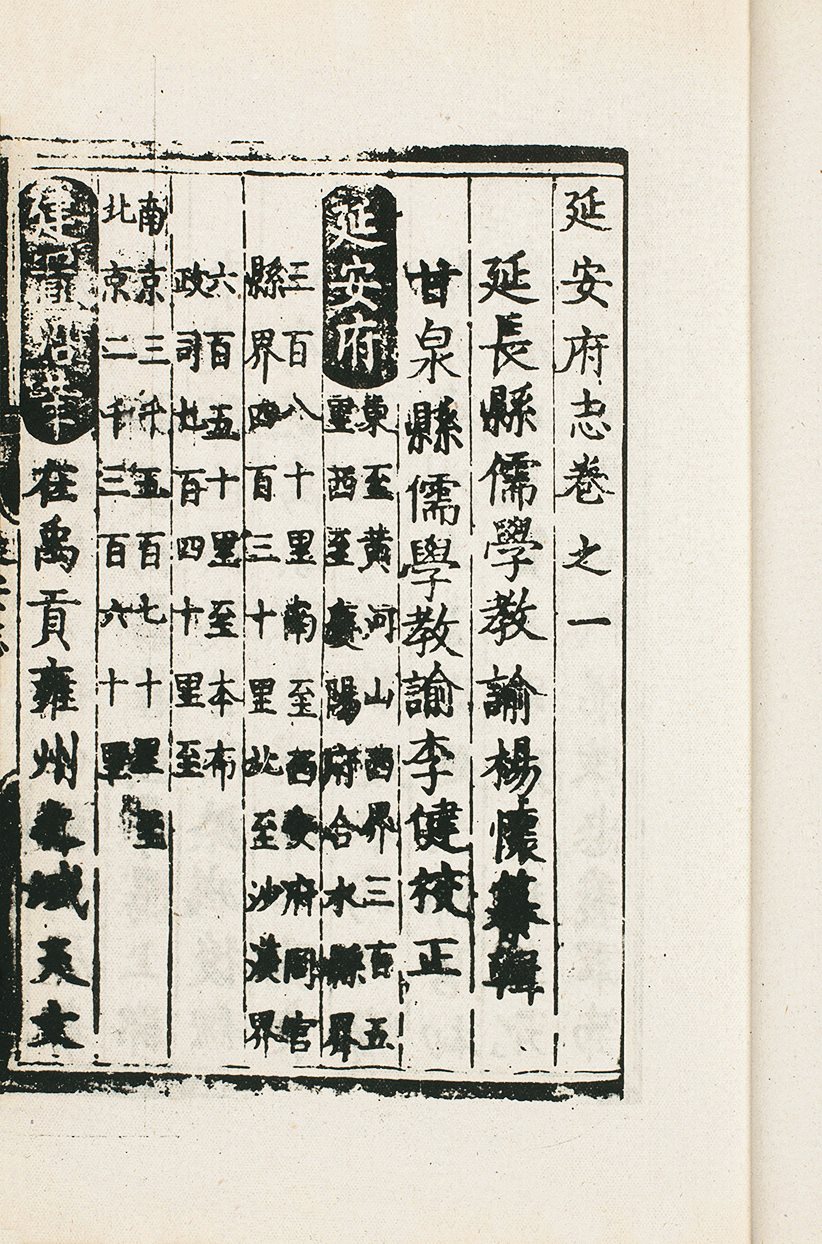 延安府志卷之一
延長縣儒學教諭楊懷纂輯
甘泉縣儒學教諭李健校正
延安府
東至黃河山西界三百五
里西至慶陽府合水縣界
三百八十里南至西安府同官
縣界四百三十里北至沙漠界
六百五十里至本布
政司七百四十里至
南京三千五百七十里至
北京二千三百六十里
建置沿革在禹貢雍州之域天文